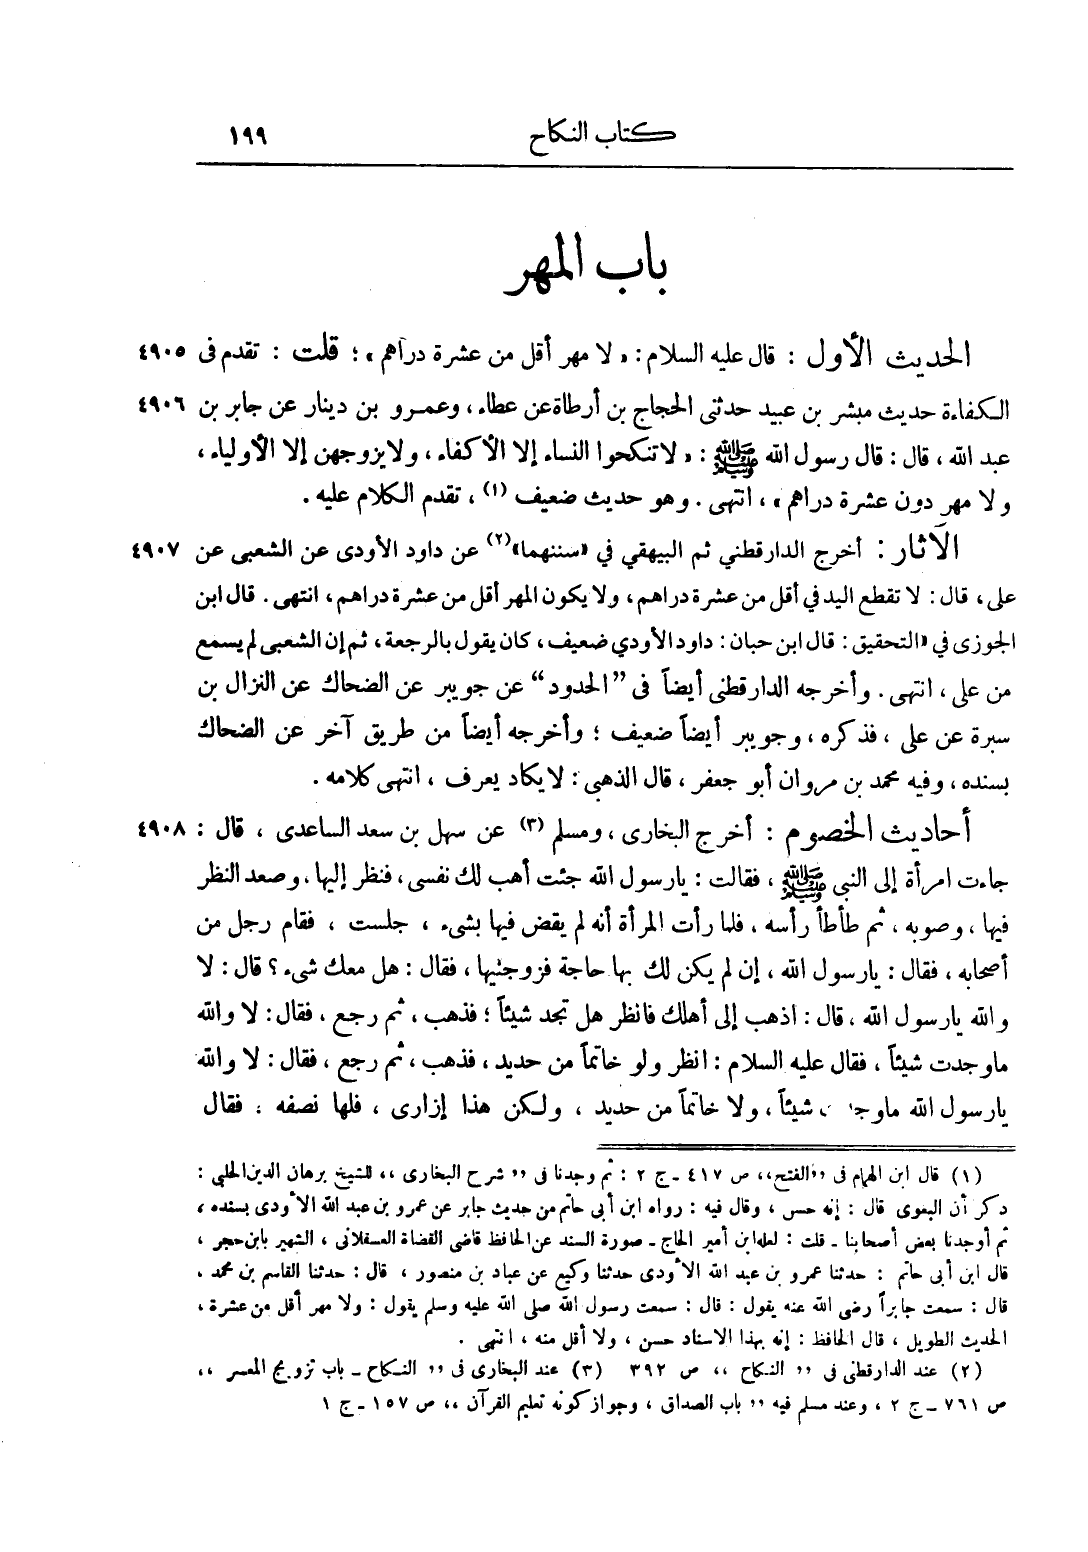 كتاب النكاح ١٩٩
باب المهر
الحديث الأول : قال عليه السلام : « لا مهر أقل من عشرة دراهم » ؛ قلت : تقدم فى ٤٩٠٥
الكفاءة حديث مبشر بن عبيد حدثنى الحجاج بن أرطاة عن عطاء ، وعمرو بن دينار عن جابر بن ٤٩٠٦
عبد الله ، قال : قال رسول الله ﷺ : « لا تنكحوا النساء إلا الأكفاء ، ولا يزوجهن إلا الأولياء ،
ولا مهر دون عشرة دراهم » ، انتهى . وهو حديث ضعيف (١) ، تقدم الكلام عليه .
الآثار : أخرج الدارقطني ثم البيهقي في «سننهما» (٢) عن داود الأودى عن الشعبى عن ٤٩٠٧
على ، قال : لا تقطع اليد في أقل من عشرة دراهم ، ولا يكون المهر أقل من عشرة دراهم ، انتهى . قال ابن
الجوزى في «التحقيق : قال ابن حبان : داود الأودي ضعيف ، كان يقول بالرجعة ، ثم إن الشعبى لم يسمع
من على ، انتهى . وأخرجه الدارقطنى أيضاً فى ”الحدود“ عن جويبر عن الضحاك عن النزال بن
سبرة عن على ، فذكره ، وجويبر أيضاً ضعيف ؛ وأخرجه أيضاً من طريق آخر عن الضحاك
بسنده ، وفيه محمد بن مروان أبو جعفر ، قال الذهبى : لا يكاد يعرف ، انتهى كلامه .
أحاديث الخصوم : أخرج البخارى ، ومسلم (٣) عن سهل بن سعد الساعدى ، قال : ٤٩٠٨
جاءت امرأة إلى النبى ﷺ ، فقالت : يارسول الله جئت أهب لك نفسى ، فنظر إليها ، وصعد النظر
فيها ، وصوبه ، ثم طأطأ رأسه ، فلما رأت المرأة أنه لم يقض فيها بشىء ، جلست ، فقام رجل من
أصحابه ، فقال : يارسول الله ، إن لم يكن لك بها حاجة فزوجنيها ، فقال : هل معك شىء ؟ قال : لا
والله يارسول الله ، قال : اذهب إلى أهلك فانظر هل تجد شيئاً ؛ فذهب ، ثم رجع ، فقال : لا والله
ماوجدت شيئاً ، فقال عليه السلام : انظر ولو خاتماً من حديد ، فذهب ، ثم رجع ، فقال : لا والله
يارسول الله شيئاً ، ولا خاتماً من حديد ، ولكن هذا إزارى ، فلها نصفه ، فقال
(١) قال ابن الهمام فى ,,الفتح،، ص ٤١٧ ـ ج ٢ : ثم وجدنا فى ,, شرح البخارى ،، للشيخ برهان الدين الحلبى :
ذكر أن البغوى قال : إنه حسن ، وقال فيه : رواه ابن أبى حاتم من حديث جابر عن عمرو بن عبد الله الأودى بسنده ،
ثم أوجدنا بعض أصحابنا ـ قلت : لعله ابن أمير الحاج ـ صورة السند عن الحافظ قاضى القضاة العسقلانى ، الشهير بابن حجر ،
قال ابن أبى حاتم : حدثنا عمرو بن عبد الله الأودى حدثنا وكيع عن عباد بن منصور ، قال : حدثنا القاسم بن محمد ،
قال : سمعت جابراً رضى الله عنه يقول : قال : سمعت رسول الله صلى الله عليه وسلم يقول : ولا مهر أقل من عشرة ،
الحديث الطويل ، قال الحافظ : إنه بهذا الاسناد حسن ، ولا أقل منه ، انتهى .
(٢) عند الدارقطنى فى ,, النكاح ،، ص ٣٩٢ (٣) عند البخارى فى ,, النكاح ـ باب تزويج المعسر ،،
ص ٧٦١ ـ ج ٢ ، وعند مسلم فيه ,, باب الصداق ، وجواز كونه تعليم القرآن ،، ص ١٥٧ ـ ج ١